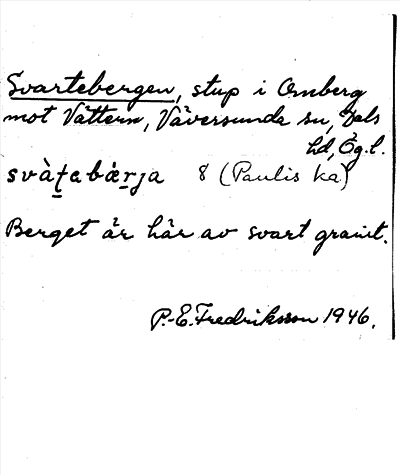 Svartebergen, stup i Omberg
mot Vättern, Väversunda sn, Dals
hd, Ög.l.
svàt̠abæ̀r̠ja 8 (Paulis ka)
Berget är här av svart granit.
P.-E. Fredriksson 1946.